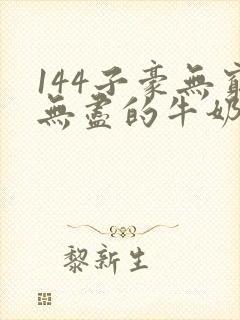 144子豪無窮
無盡的牛奶
黎新生